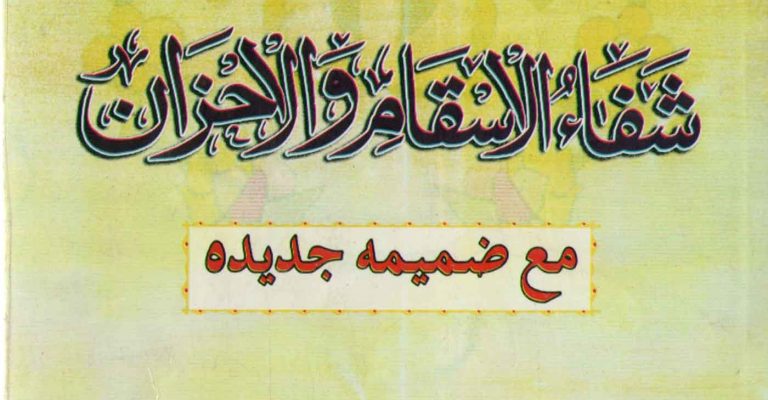 شَفَاءُ الْاَسْقَامِ وَالْاَحْزَان
مع ضمیمه جدیده